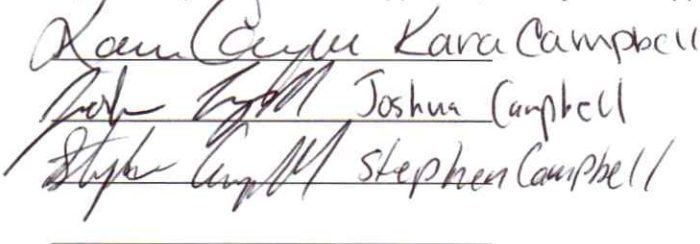 Kara Campbell Kara Campbell
Joshua Campbell Joshua Campbell
Stephen Campbell Stephen Campbell